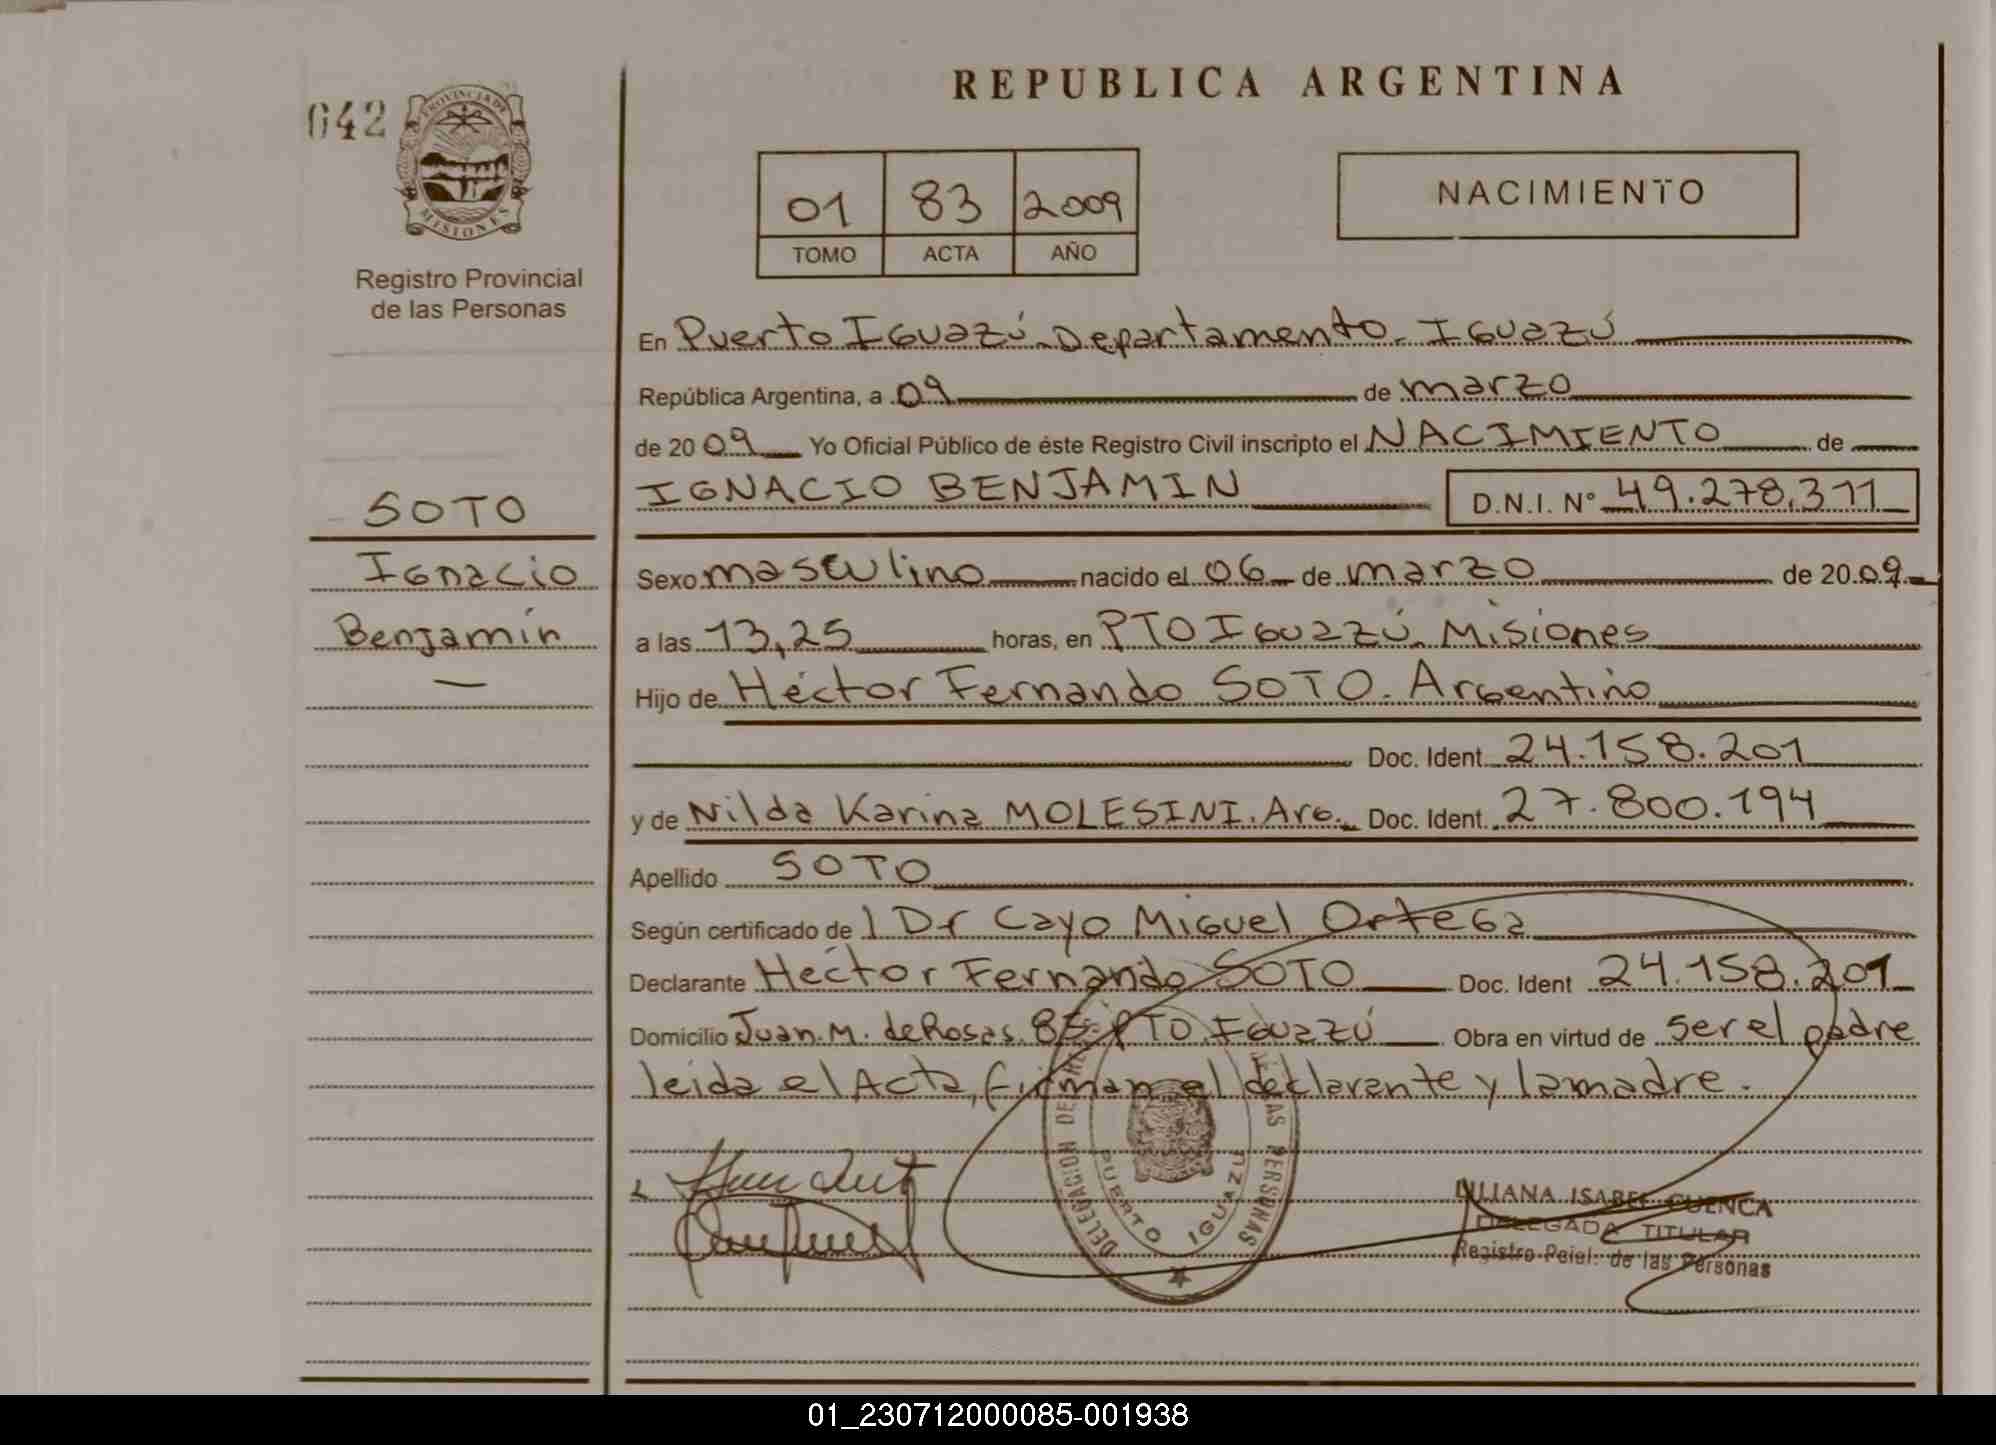 642
PROVINCIA DE
MISIONES
Registro Provincial
de las Personas
REPUBLICA ARGENTINA
01 83 2009
TOMO ACTA AÑO
NACIMIENTO
En Puerto Iguazú. Departamento. Iguazú
República Argentina, a 09 de marzo
de 20 09 Yo Oficial Público de éste Registro Civil inscripto el NACIMIENTO de
IGNACIO BENJAMIN D.N.I. N° 49.278.311
SOTO
Ignacio
Benjamín
Sexo masculino nacido el 06 de marzo de 20 09
a las 13,25 horas, en PTO Iguazú. Misiones
Hijo de Héctor Fernando SOTO. Argentino
Doc. Ident. 24.158.201
y de Nilda Karina MOLESINI. Arg. Doc. Ident. 27.800.194
Apellido SOTO
Según certificado de l Dr Cayo Miguel Ortega
Declarante Héctor Fernando SOTO Doc. Ident 24.158.201
Domicilio Juan. M. de Rosas. PTO. Iguazú Obra en virtud de ser el padre
leida el Acta, firman el declarante y la madre.
DELEGACION DE LAS PERSONAS
PUERTO IGUAZU
LILIANA ISABEL CUENCA
DELEGADA TITULAR
Registro Pcial. de las Personas
01_230712000085-001938